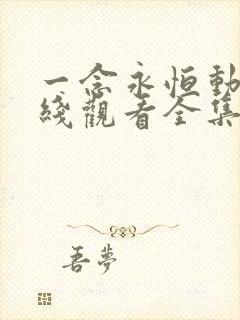 一念永恒動
綫觀看全集
吾夢